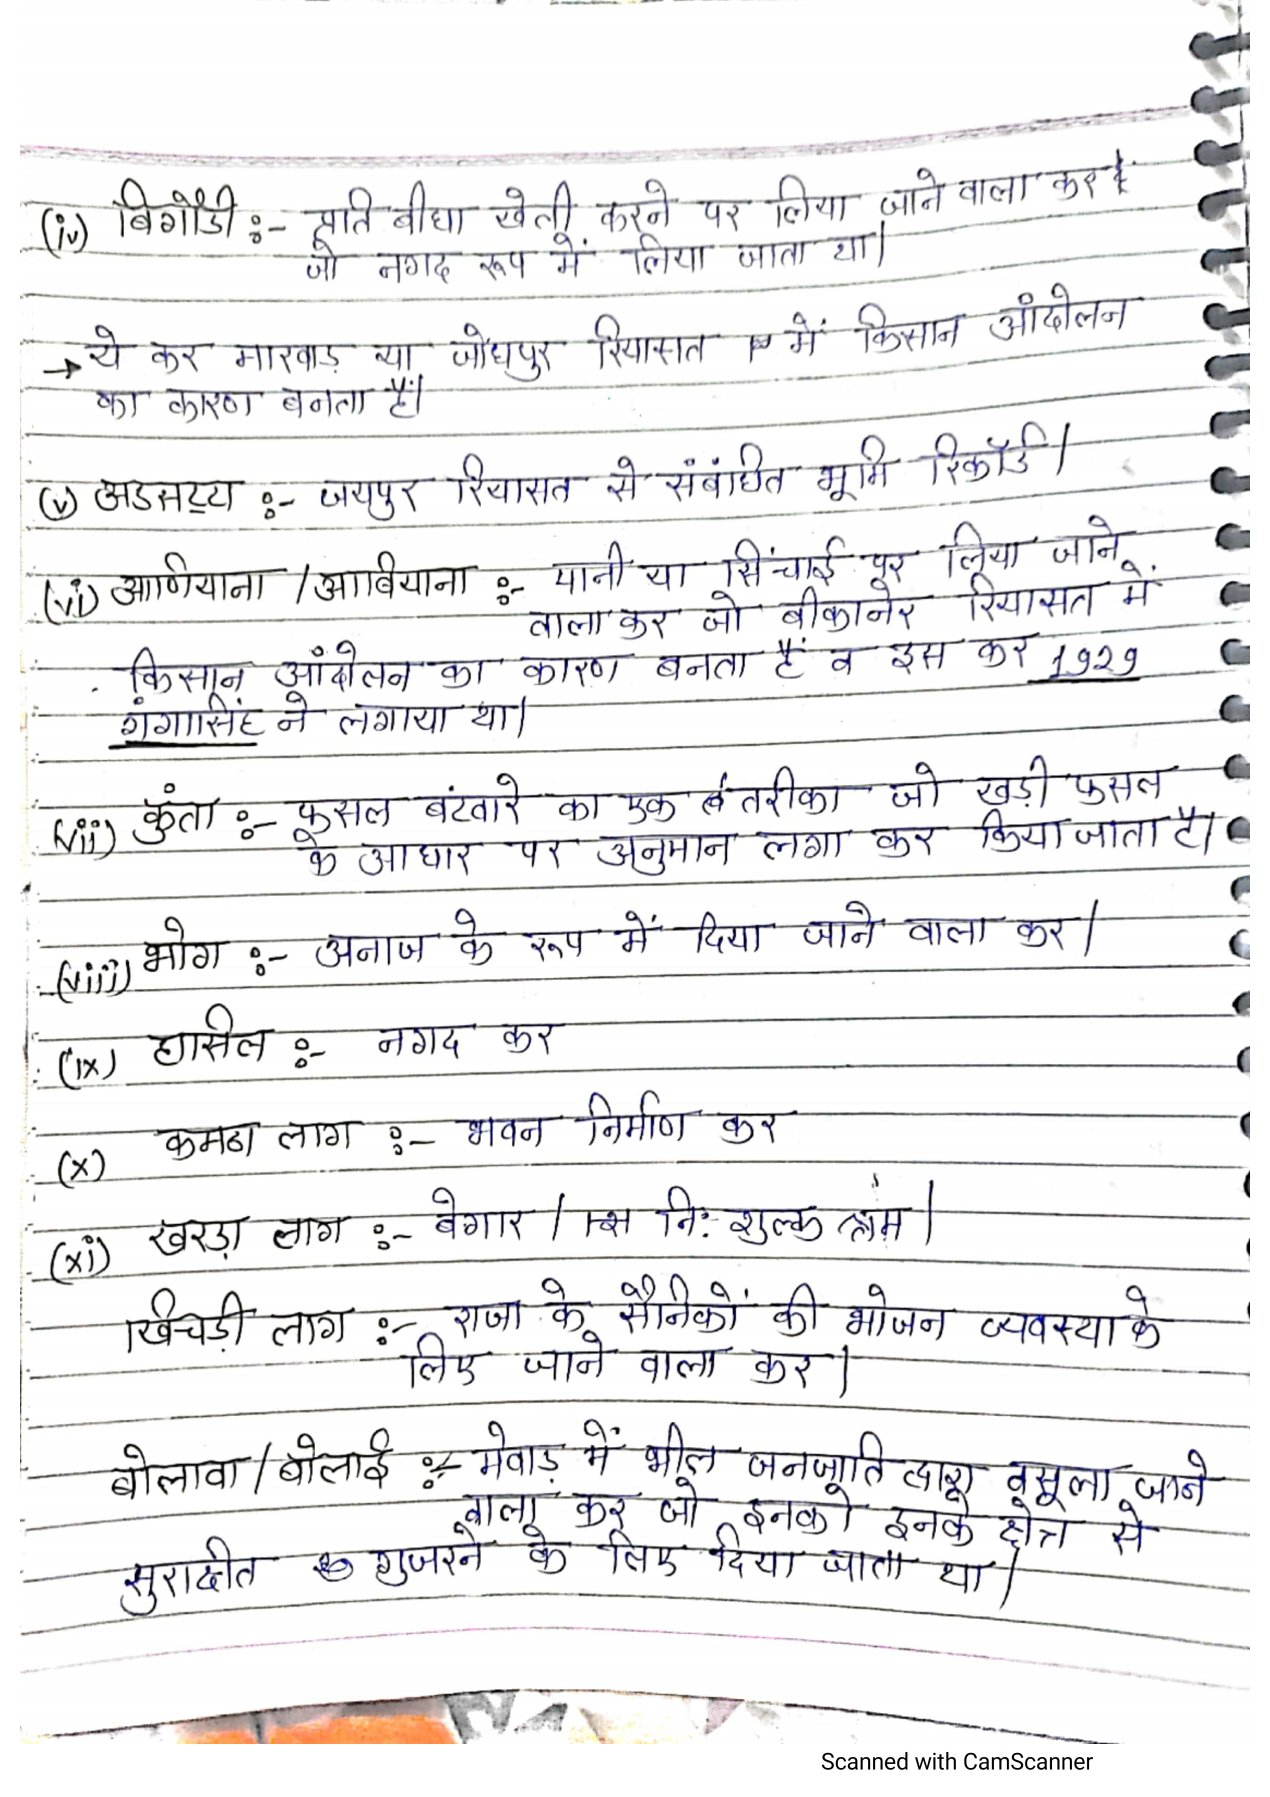 (iv) बिगोडी :- प्रति बीघा खेती करने पर लिया जाने वाला कर है
जो नगद रूप में लिया जाता था।
→ ये कर मारवाड़ या जोधपुर रियासत में किसान आंदोलन
का कारण बनता है।
(v) अडसट्टा :- जयपुर रियासत से संबंधित भूमि रिकॉर्ड।
(vi) आणियाना / आबियाना :- पानी या सिंचाई पर लिया जाने
वाला कर जो बीकानेर रियासत में
किसान आंदोलन का कारण बनता है व इस कर 1929
गंगासिंह ने लगाया था।
(vii) कुंता :- फसल बंटवारे का एक तरीका जो खड़ी फसल
के आधार पर अनुमान लगा कर किया जाता है।
(viii) भोग :- अनाज के रूप में दिया जाने वाला कर।
(ix) हासिल :- नगद कर
(x) कमठा लाग :- भवन निर्माण कर
(xi) खरडा लाग :- बेगार / नि: शुल्क श्रम।
खिचड़ी लाग :- राजा के सैनिकों की भोजन व्यवस्था के
लिए जाने वाला कर।
बोलावा / बोलाई :- मेवाड़ में भील जनजाति द्वारा वसूला जाने
वाला कर जो इनको इनके क्षेत्र से
सुरक्षीत गुजरने के लिए दिया जाता था।
Scanned with CamScanner